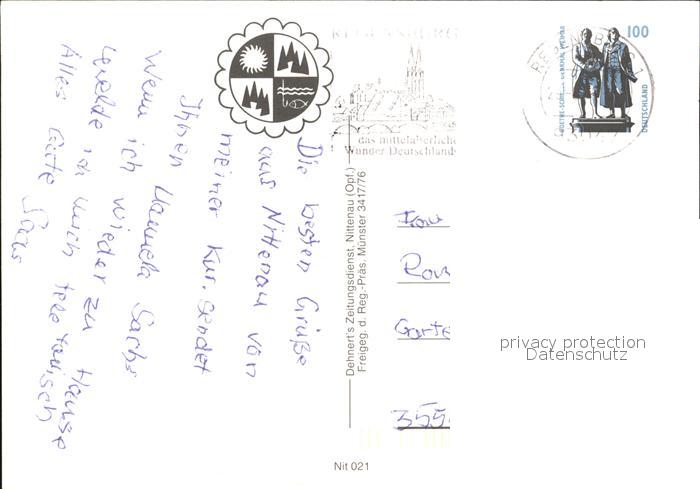 Die besten Grüße
aus Nittenau von
meiner Kur. sendet
Ihnen Sachs
Wenn ich wieder zu Hause
melde ich mich telefonisch
Alles Gute Sachs
REGENSBURG
das mittelalterliche
Wunder Deutschlands
100
DEUTSCHLAND
Dehnert's Zeitungsdienst, Nittenau (Opf.)
Freigeg. d. Reg.-Präs. Münster 3417/76
Frau
Garte
355
privacy protection
Datenschutz
Nit 021